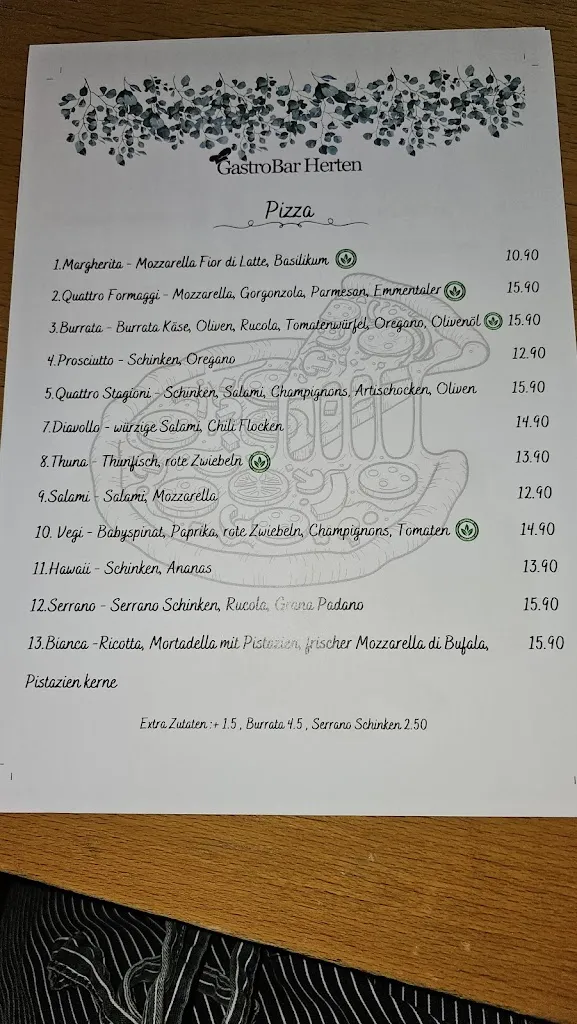 GastroBar Herten
Pizza
1.Margherita - Mozzarella Fior di Latte, Basilikum 10.90
2.Quattro Formaggi - Mozzarella, Gorgonzola, Parmesan, Emmentaler 15.90
3.Burrata - Burrata Käse, Oliven, Rucola, Tomatenwürfel, Oregano, Olivenöl 15.90
4.Prosciutto - Schinken, Oregano 12.90
5.Quattro Stagioni - Schinken, Salami, Champignons, Artischocken, Oliven 15.90
7.Diavollo - würzige Salami, Chili Flocken 14.90
8.Thuna - Thunfisch, rote Zwiebeln 13.90
9.Salami - Salami, Mozzarella 12.90
10. Vegi - Babyspinat, Paprika, rote Zwiebeln, Champignons, Tomaten 14.90
11.Hawaii - Schinken, Ananas 13.90
12.Serrano - Serrano Schinken, Rucola, Grana Padano 15.90
13.Bianca -Ricotta, Mortadella mit Pistazien, frischer Mozzarella di Bufala, 15.90
Pistazien kerne
Extra Zutaten :+ 1.5 , Burrata 4.5 , Serrano Schinken 2.50